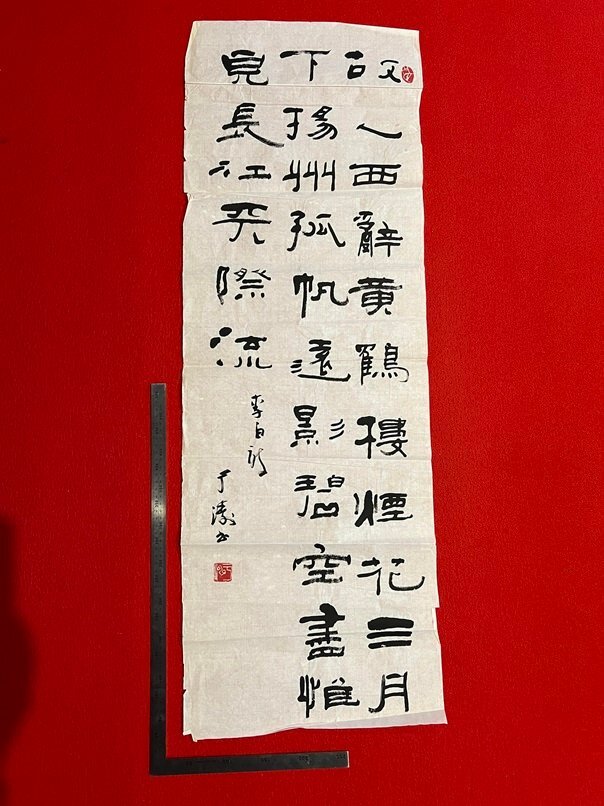 故人西辭黃鶴樓煙花三月
下揚州孤帆遠影碧空盡惟
見長江天際流
李白詩